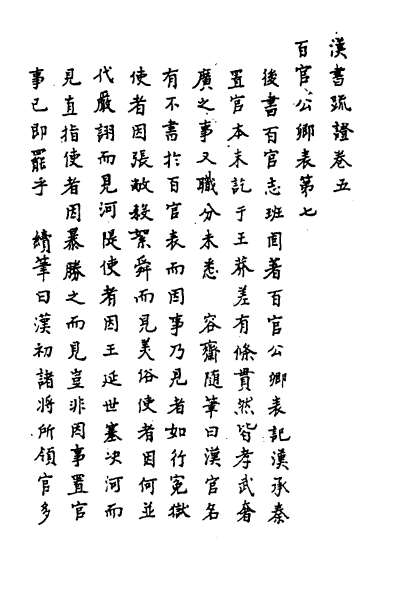 漢書疏證卷五
百官公卿表第七
後書百官志班固著百官公卿表記漢承秦
置官本末訖于王莽差有條貫然皆孝武奢
廣之事又職分未悉 容齋隨筆曰漢官名
有不書於百官表而因事乃見者如行冤獄
使者因張敞殺絮舜而見美俗使者因何並
代嚴詡而見河隄使者因王延世塞决河而
見直指使者因暴勝之而見豈非因事置官
事已即罷乎 續筆曰漢初諸將所領官多